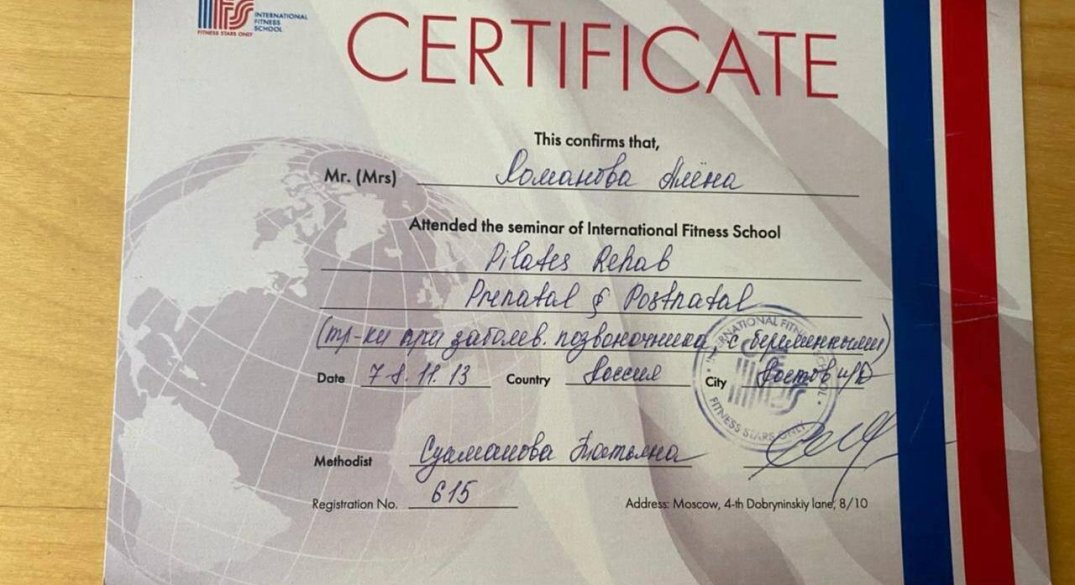 IFS INTERNATIONAL
FITNESS
SCHOOL
FITNESS STARS ONLY
CERTIFICATE
This confirms that,
Mr. (Mrs) Романова Алёна
Attended the seminar of International Fitness School
Pilates Rehab
Prenatal & Postnatal
(тр-ки при заболев. позвоночника, с беременными)
Date 7-8.11.13 Country Россия City Ростов н/Д
INTERNATIONAL FITNESS SCHOOL
IFS
FITNESS STARS ONLY
Methodist Татьяна
Registration No. 615 Address: Moscow, 4-th Dobryninskiy lane, 8/10